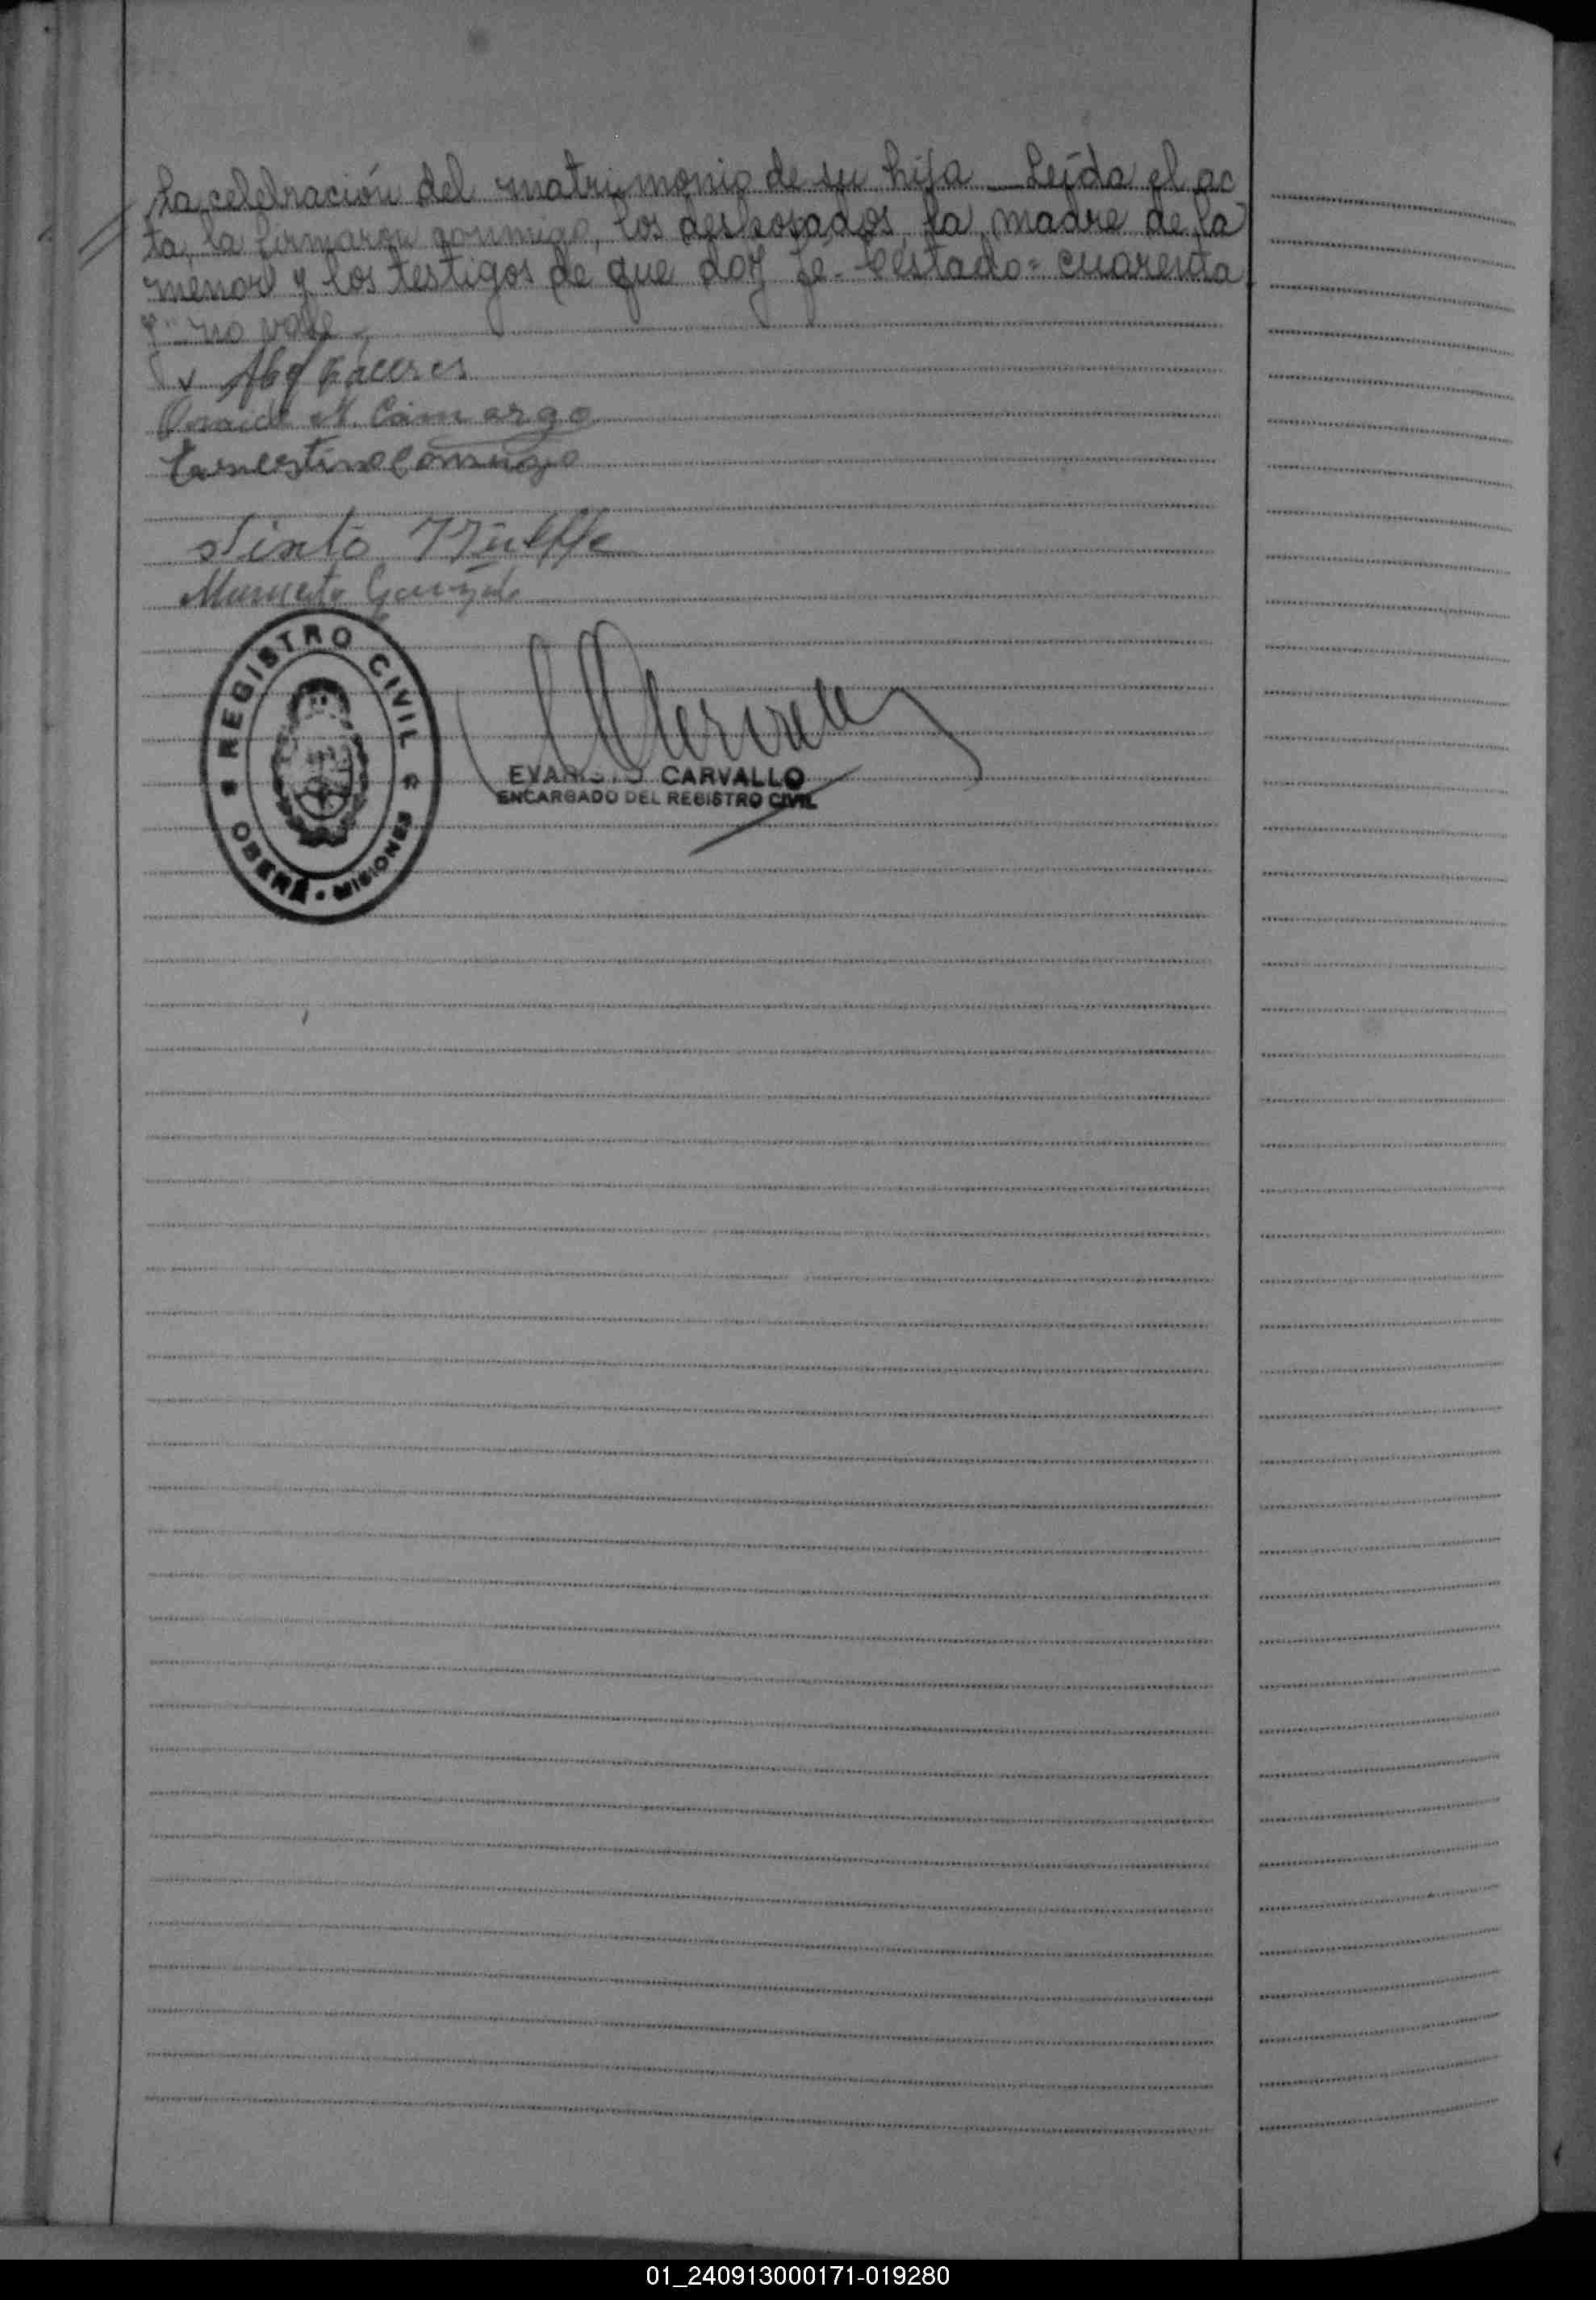 la celebración del matrimonio de su hija _ Leída el ac
ta, la firmaron conmigo, los desposados, la madre de la
menor y los testigos de que doy fe.- Testado= cuarenta
y= no vale.-
Cáceres
M. Camargo
Sixto
REGISTRO CIVIL
OBERÁ - MISIONES
EVARISTO CARVALLO
ENCARGADO DEL REGISTRO CIVIL
01_240913000171-019280